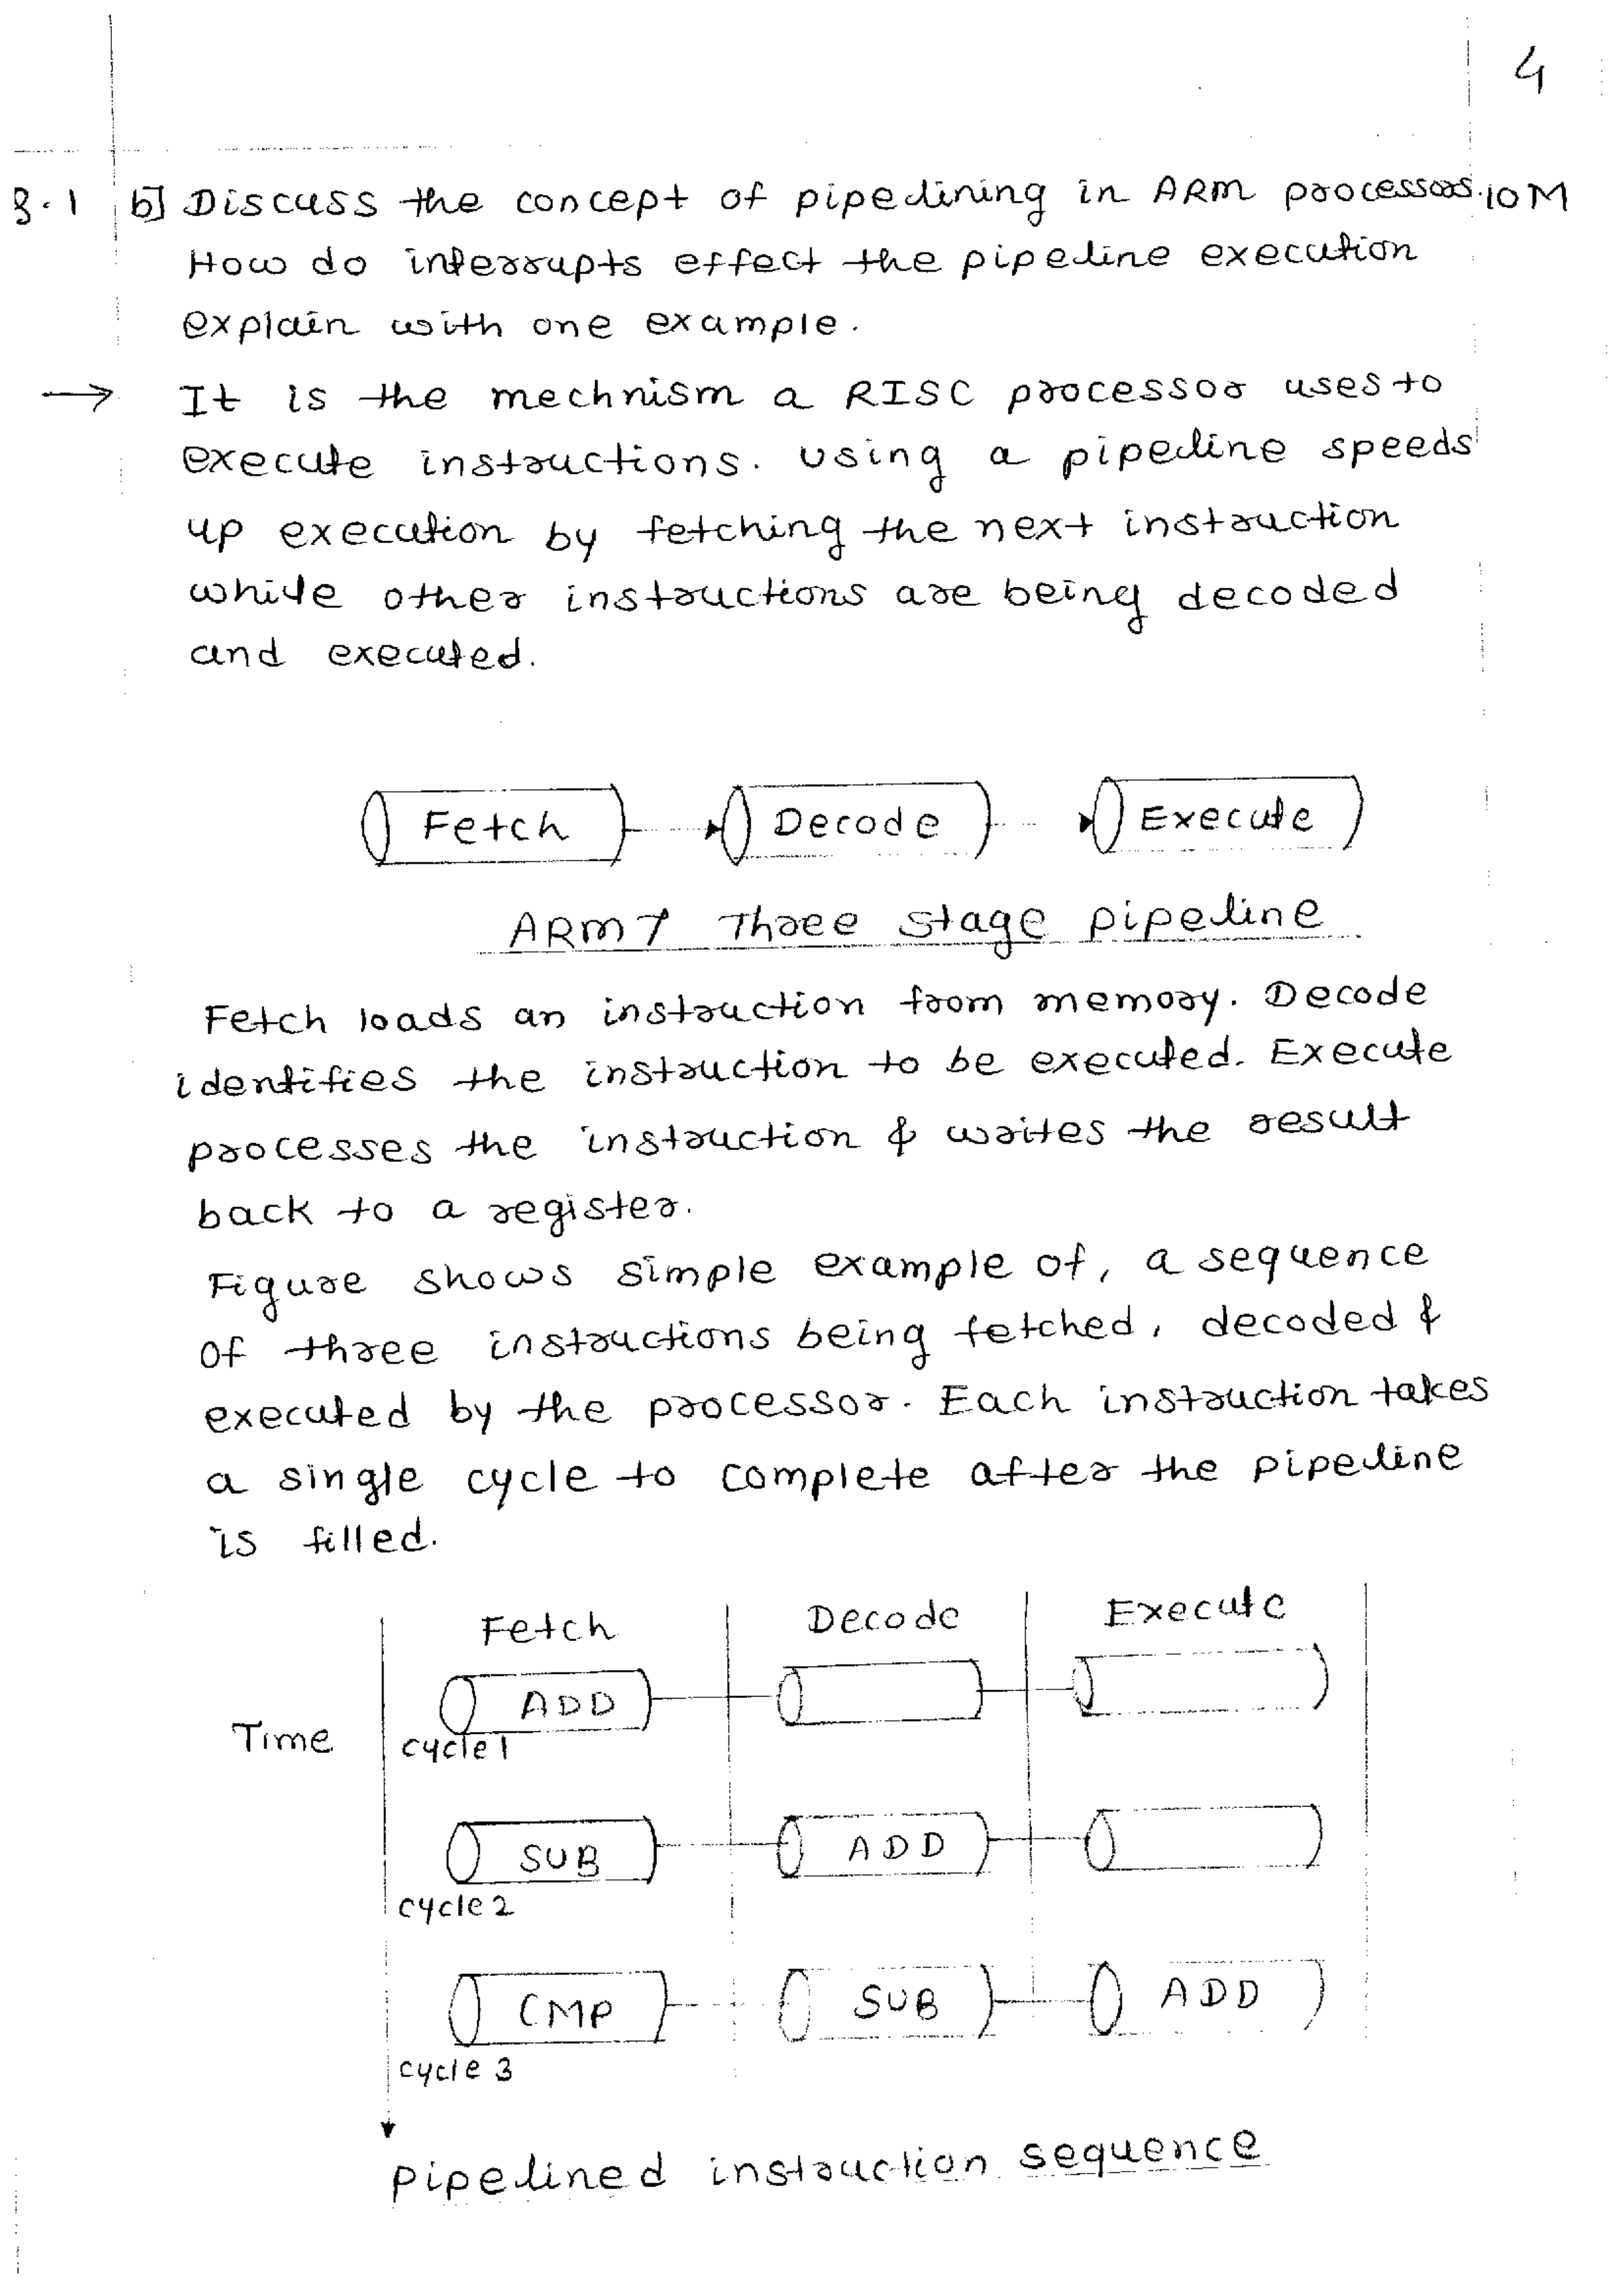 4
8.1 b] Discuss the concept of pipelining in ARM processors. 10M
How do interrupts effect the pipeline execution
explain with one example.
→ It is the mechnism a RISC processor uses to
execute instructions. Using a pipeline speeds
up execution by fetching the next instruction
while other instructions are being decoded
and executed.
Fetch Decode Execute
ARM7 Three stage pipeline
Fetch loads an instruction from memory. Decode
identifies the instruction to be executed. Execute
processes the instruction & writes the result
back to a register.
Figure shows simple example of, a sequence
of three instructions being fetched, decoded &
executed by the processor. Each instruction takes
a single cycle to complete after the pipeline
is filled.
Fetch Decode Execute
ADD
Time cycle 1
SUB ADD
cycle 2
CMP SUB ADD
cycle 3
Pipelined instruction sequence